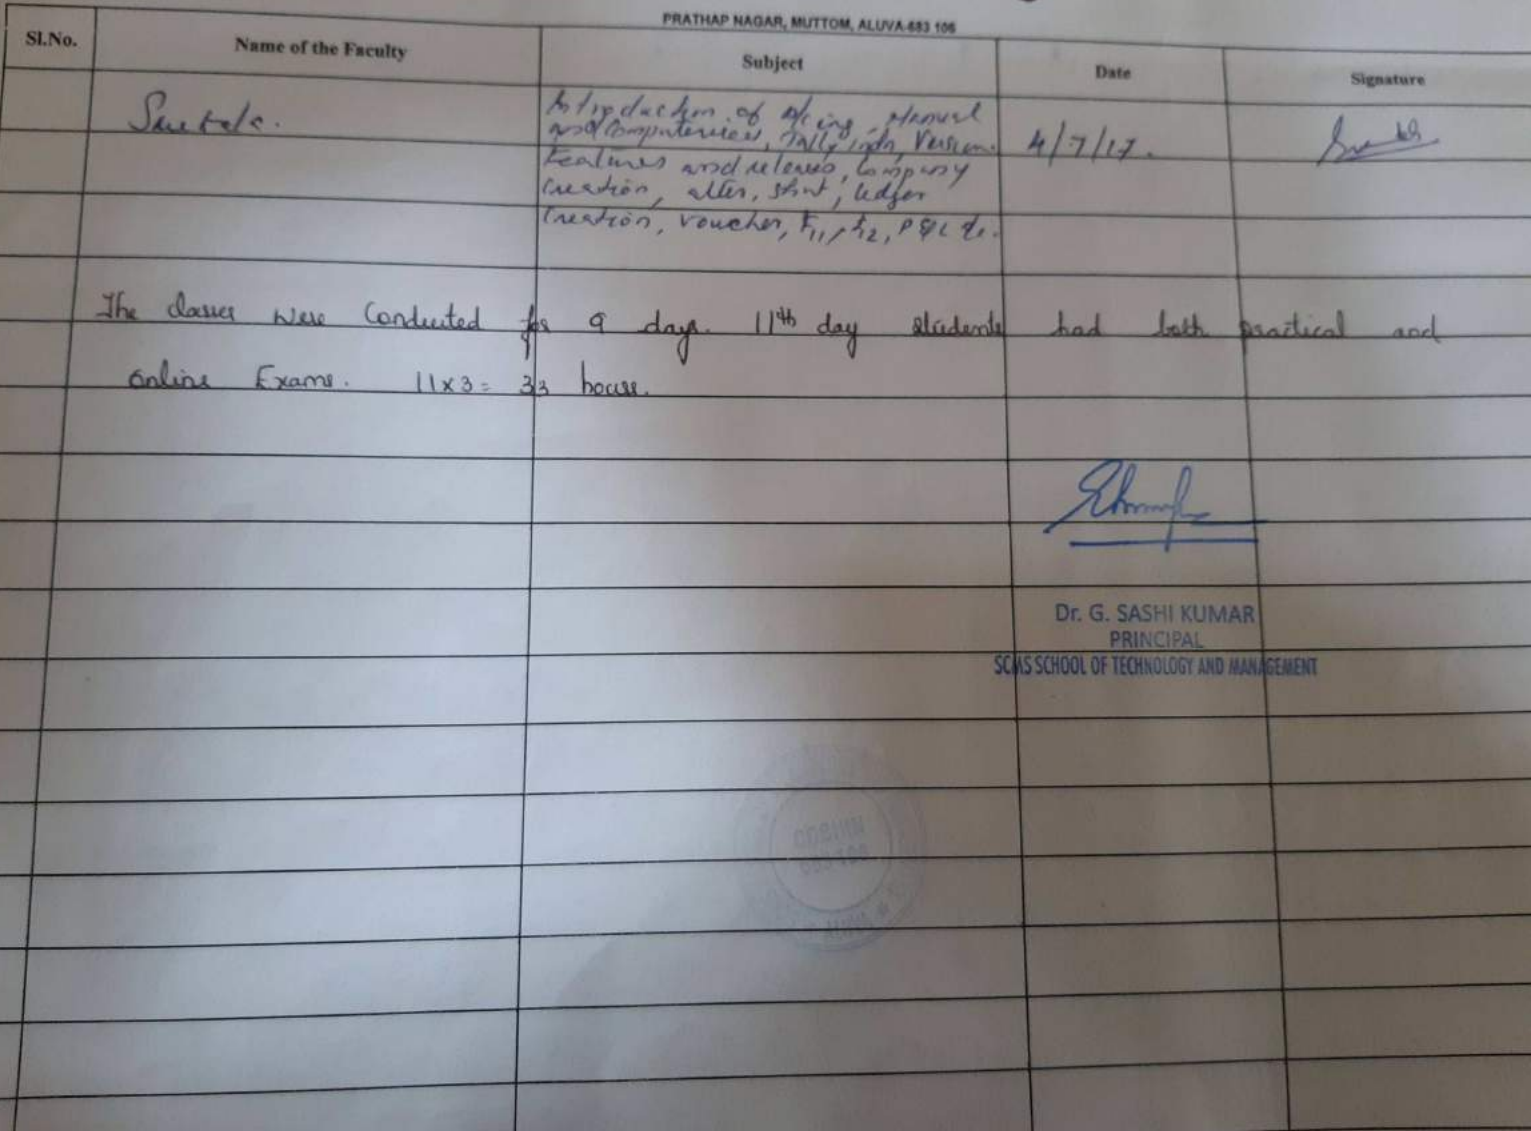 PRATHAP NAGAR, MUTTOM, ALUVA-683 106
Sl.No. Name of the Faculty Subject Date Signature
Introduction of A/cing, Manual
and Computerised, Tally, Version
Features and releases, Company
Creation, alter, shut, ledger
Creation, voucher, F11, F12, P&L
4/7/17.
The classes were Conducted for 9 days. 11th day students had both practical and
online Exams. 11x3= 33 hours.
Dr. G. SASHI KUMAR
PRINCIPAL
SCMS SCHOOL OF TECHNOLOGY AND MANAGEMENT